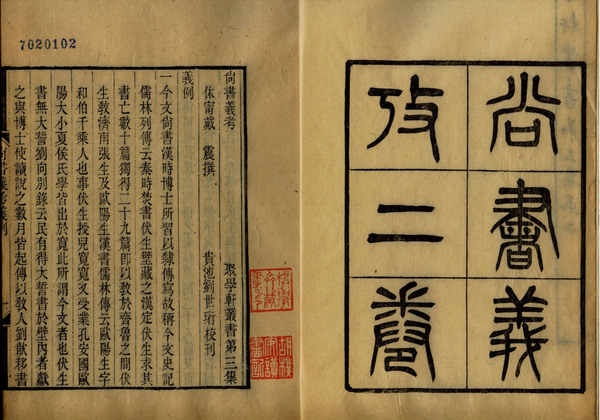 尚書義
攷二卷
7020102
尚書義考 聚學軒叢書第三集
休甯戴 震撰 貴池劉世珩校刊
義例
一今文尚書漢時博士所習以隸傳寫故稱今文史記
儒林列傳云秦時焚書伏生壁藏之漢定伏生求其
書亡數十篇獨得二十九篇卽以敎於齊魯之間伏
生敎濟南張生及歐陽生漢書儒林傳云歐陽生字
和伯千乘人也事伏生授兒寬寬又受業孔安國歐
陽大小夏侯氏學皆出於寬此所謂今文者也伏生
書無大誓劉向別錄云民有得大誓書於壁內者獻
之與博士使讀說之數月皆起傳以敎人劉歆移書
尚書義考義例